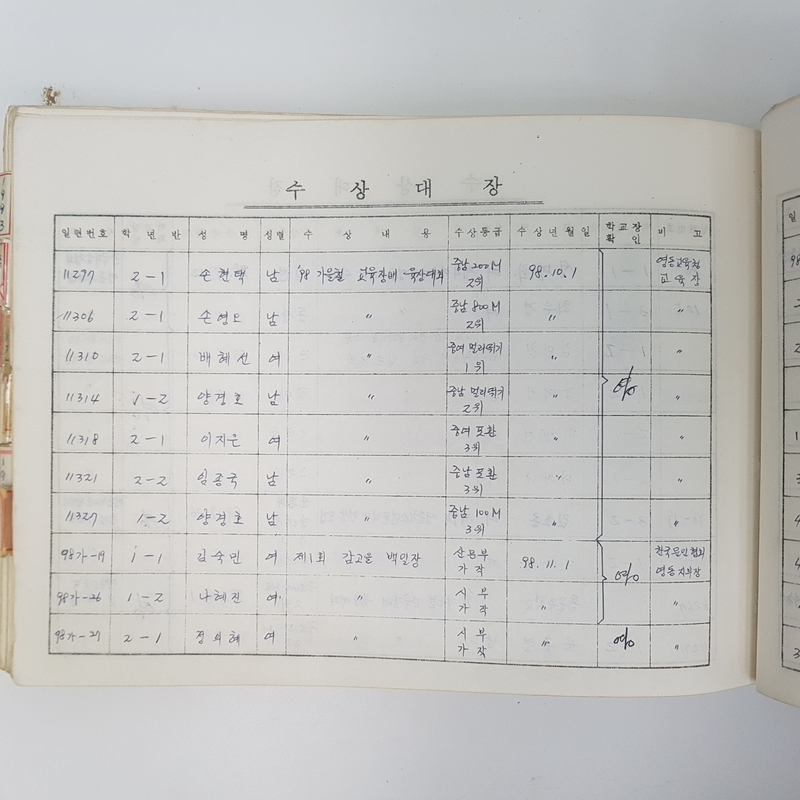 수 상 대 장
일련번호 학년반 성명 성별 수상내용 수상등급 수상년월일 학교장확인 비고
11277 2-1 손현택 남 '98 가을철 교육장배 육상대회 중남 200M 2위 98.10.1 영동교육청 교육장
11306 2-1 손영모 남 〃 중남 800M 2위 〃 〃
11310 2-1 배혜선 여 〃 중여 멀리뛰기 1위 〃 〃
11314 1-2 양경호 남 〃 중남 멀리뛰기 2위 〃 〃
11318 2-1 이지은 여 〃 중여 포환 3위 〃 〃
11321 2-2 임종국 남 〃 중남 포환 3위 〃 〃
11327 1-2 양경호 남 〃 중남 100M 3위 〃 〃
98가-19 1-1 김숙민 여 제1회 감고을 백일장 산문부 가작 98.11.1 한국문인협회 영동지부장
98가-26 1-2 나혜진 여 〃 시부 가작 〃 〃
98가-27 2-1 정의혜 여 〃 시부 가작 〃 〃